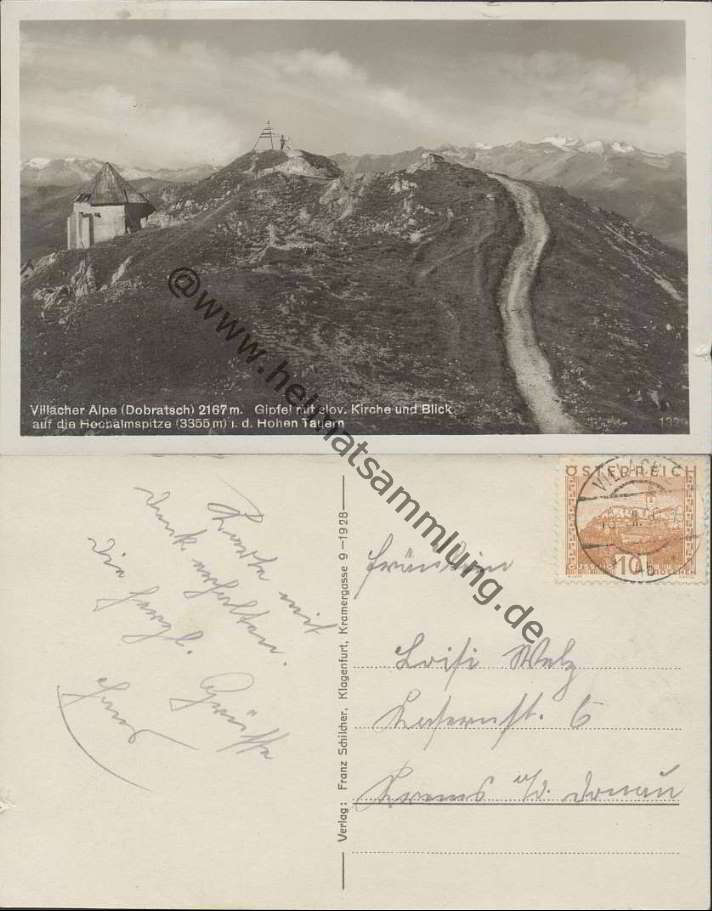 Villacher Alpe (Dobratsch) 2167 m. Gipfel mit slov. Kirche und Blick
auf die Hochalmspitze (3355 m) i. d. Hohen Tauern
@www.heimatsammlung.de
ÖSTERREICH
VILLACH
10
Karte mit
Dank erhalten.
die herzl.
Grüsse
Hans
Verlag: Franz Schilcher, Klagenfurt, Kramergasse 9 – 1928
Fräulein
Loisi Welz
Kasernstr. 6
Krems a/d. Donau